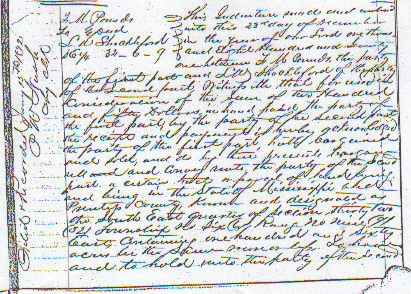 J. M. Pounds
to Deed
L. R. Shackleford
SE 1/4 34-6-9
This Indenture made and entered
into this 23 day of December
in the year of our Lord one thousand
and Eight Hundred and Seventy
one between J. M. Pounds, the party
of the first part and L. R. Shackleford of
of the second part Witnesseth that for and in
Consideration of the sum of One Hundred
and Fifty Dollars in hand paid the party of
the first part by the party of the second part
the receipt and payment is hereby acknowledged
the party of the first part hath bargained
and sold, and do by these presents bargain
sell and convey unto the party of the second
part a certain tract or parcel of land lying
and being in the State of Mississippi and
County Known and designated as
the South East quarter of Section Thirty
Township No Six Range No Nine
East Containing one hundred and Sixty
acres be the same more or less To have
and to hold unto the party of the second
Filed &